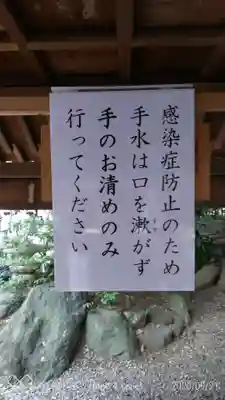 感染症防止のため
手水は口を漱がず
手のお清めのみ
行ってください